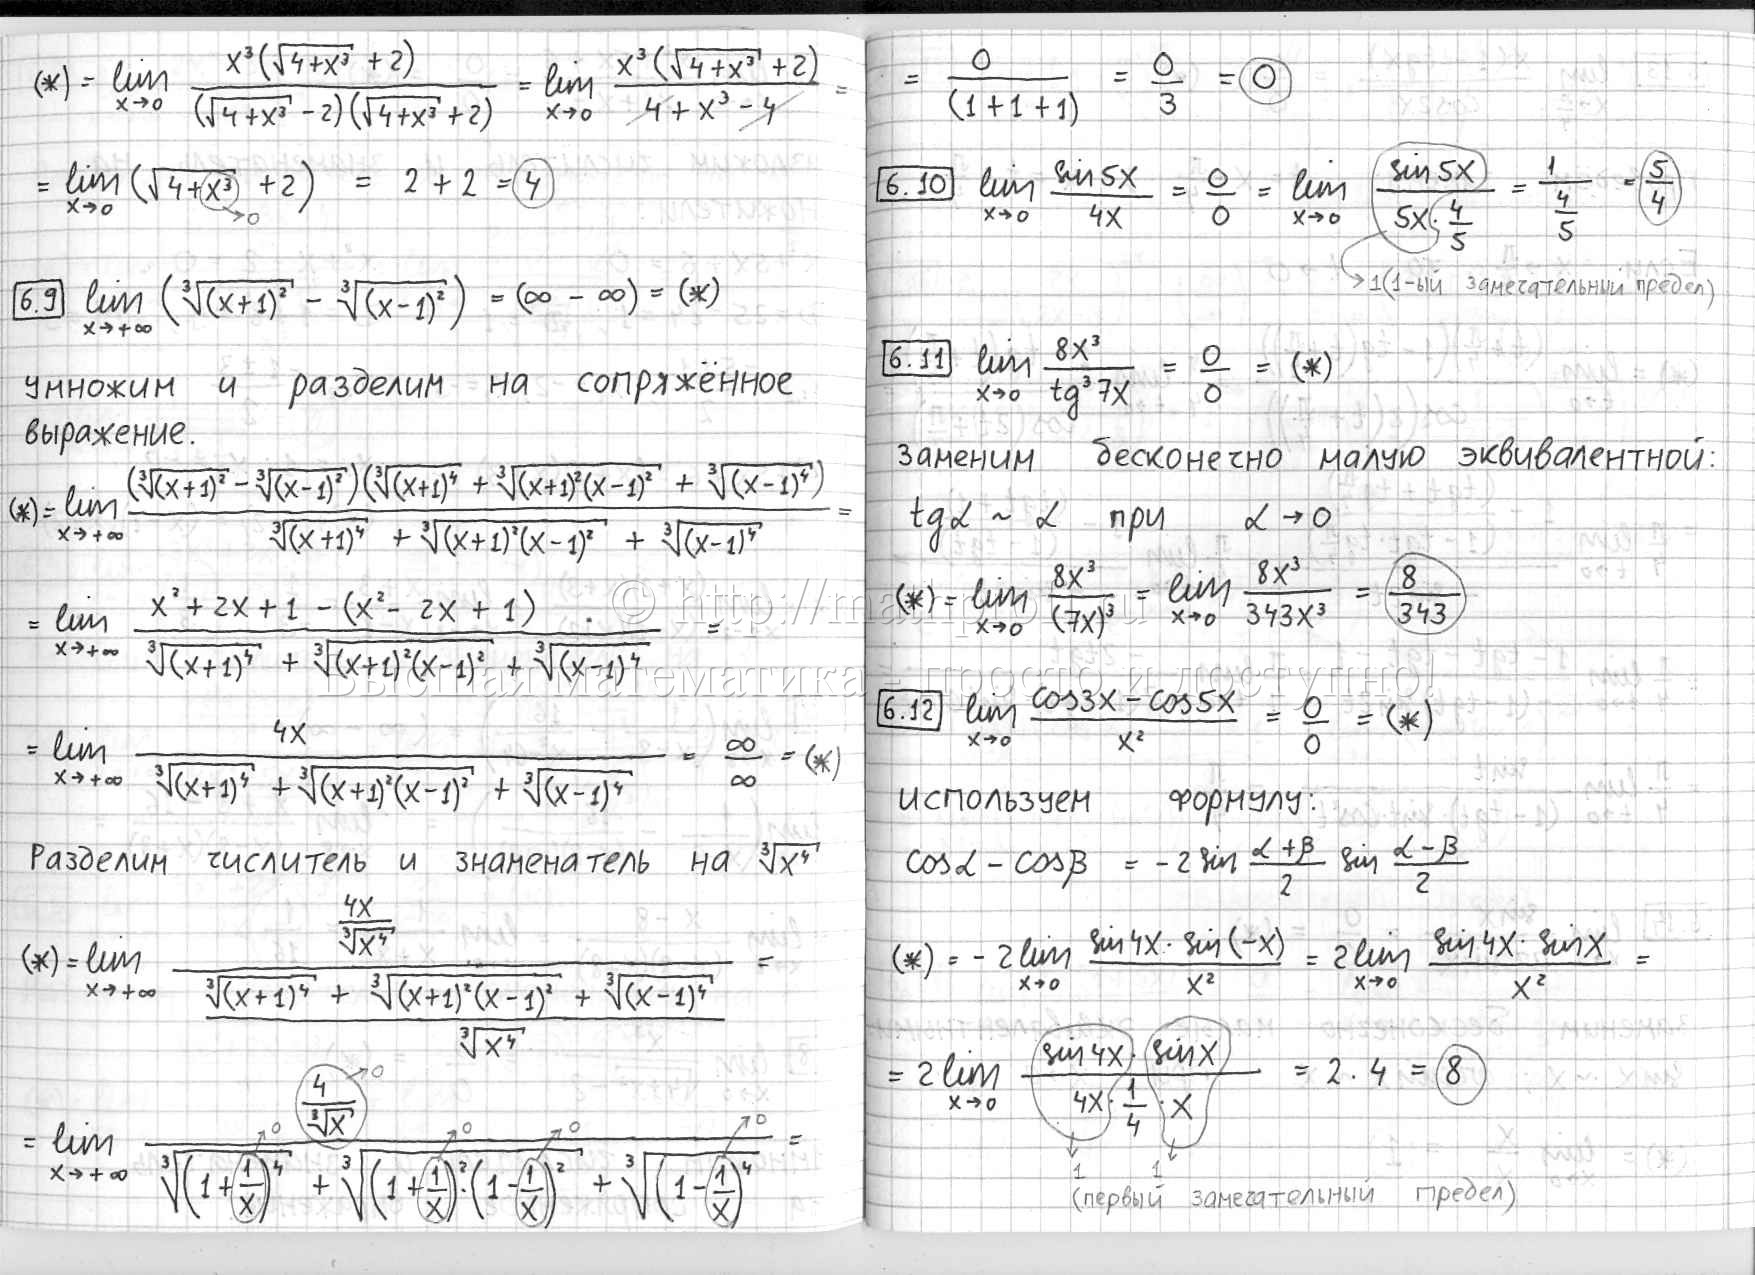 (*) = lim x→0 x³(√(4+x³) + 2) / (√(4+x³) − 2)(√(4+x³) + 2) = lim x→0 x³(√(4+x³) + 2) / 4 + x³ − 4 =
= lim x→0 (√(4+x³) + 2) = 2 + 2 = 4
→0
6.9 lim x→+∞ (∛(x+1)² − ∛(x−1)²) = (∞ − ∞) = (*)
умножим и разделим на сопряжённое
выражение.
(*) = lim x→+∞ (∛(x+1)² − ∛(x−1)²)(∛(x+1)⁴ + ∛(x+1)²(x−1)² + ∛(x−1)⁴) / ∛(x+1)⁴ + ∛(x+1)²(x−1)² + ∛(x−1)⁴ =
= lim x→+∞ x² + 2x + 1 − (x² − 2x + 1) / ∛(x+1)⁴ + ∛(x+1)²(x−1)² + ∛(x−1)⁴ =
= lim x→+∞ 4x / ∛(x+1)⁴ + ∛(x+1)²(x−1)² + ∛(x−1)⁴ = ∞/∞ = (*)
Разделим числитель и знаменатель на ∛x⁴
(*) = lim x→+∞ 4x/∛x⁴ / (∛(x+1)⁴ + ∛(x+1)²(x−1)² + ∛(x−1)⁴ / ∛x⁴) =
= lim x→+∞ 4/∛x →0 / ∛(1+1/x)⁴ + ∛(1+1/x)²·(1−1/x)² + ∛(1−1/x)⁴ =
→0 →0 →0 →0
= 0/(1+1+1) = 0/3 = 0
6.10 lim x→0 sin5x/4x = 0/0 = lim x→0 sin5x / 5x·4/5 = 1/(4/5) = 5/4
→1 (1-ый замечательный предел)
6.11 lim x→0 8x³/tg³7x = 0/0 = (*)
Заменим бесконечно малую эквивалентной:
tgα ~ α при α→0
(*) = lim x→0 8x³/(7x)³ = lim x→0 8x³/343x³ = 8/343
6.12 lim x→0 cos3x − cos5x / x² = 0/0 = (*)
используем формулу:
cosα − cosβ = −2 sin (α+β)/2 sin (α−β)/2
(*) = −2 lim x→0 sin4x·sin(−x) / x² = 2 lim x→0 sin4x·sinx / x² =
= 2 lim x→0 sin4x·sinx / 4x·1/4·x = 2·4 = 8
1 1
(первый замечательный предел)
© http://mathprofi.ru
Высшая математика – просто и доступно!